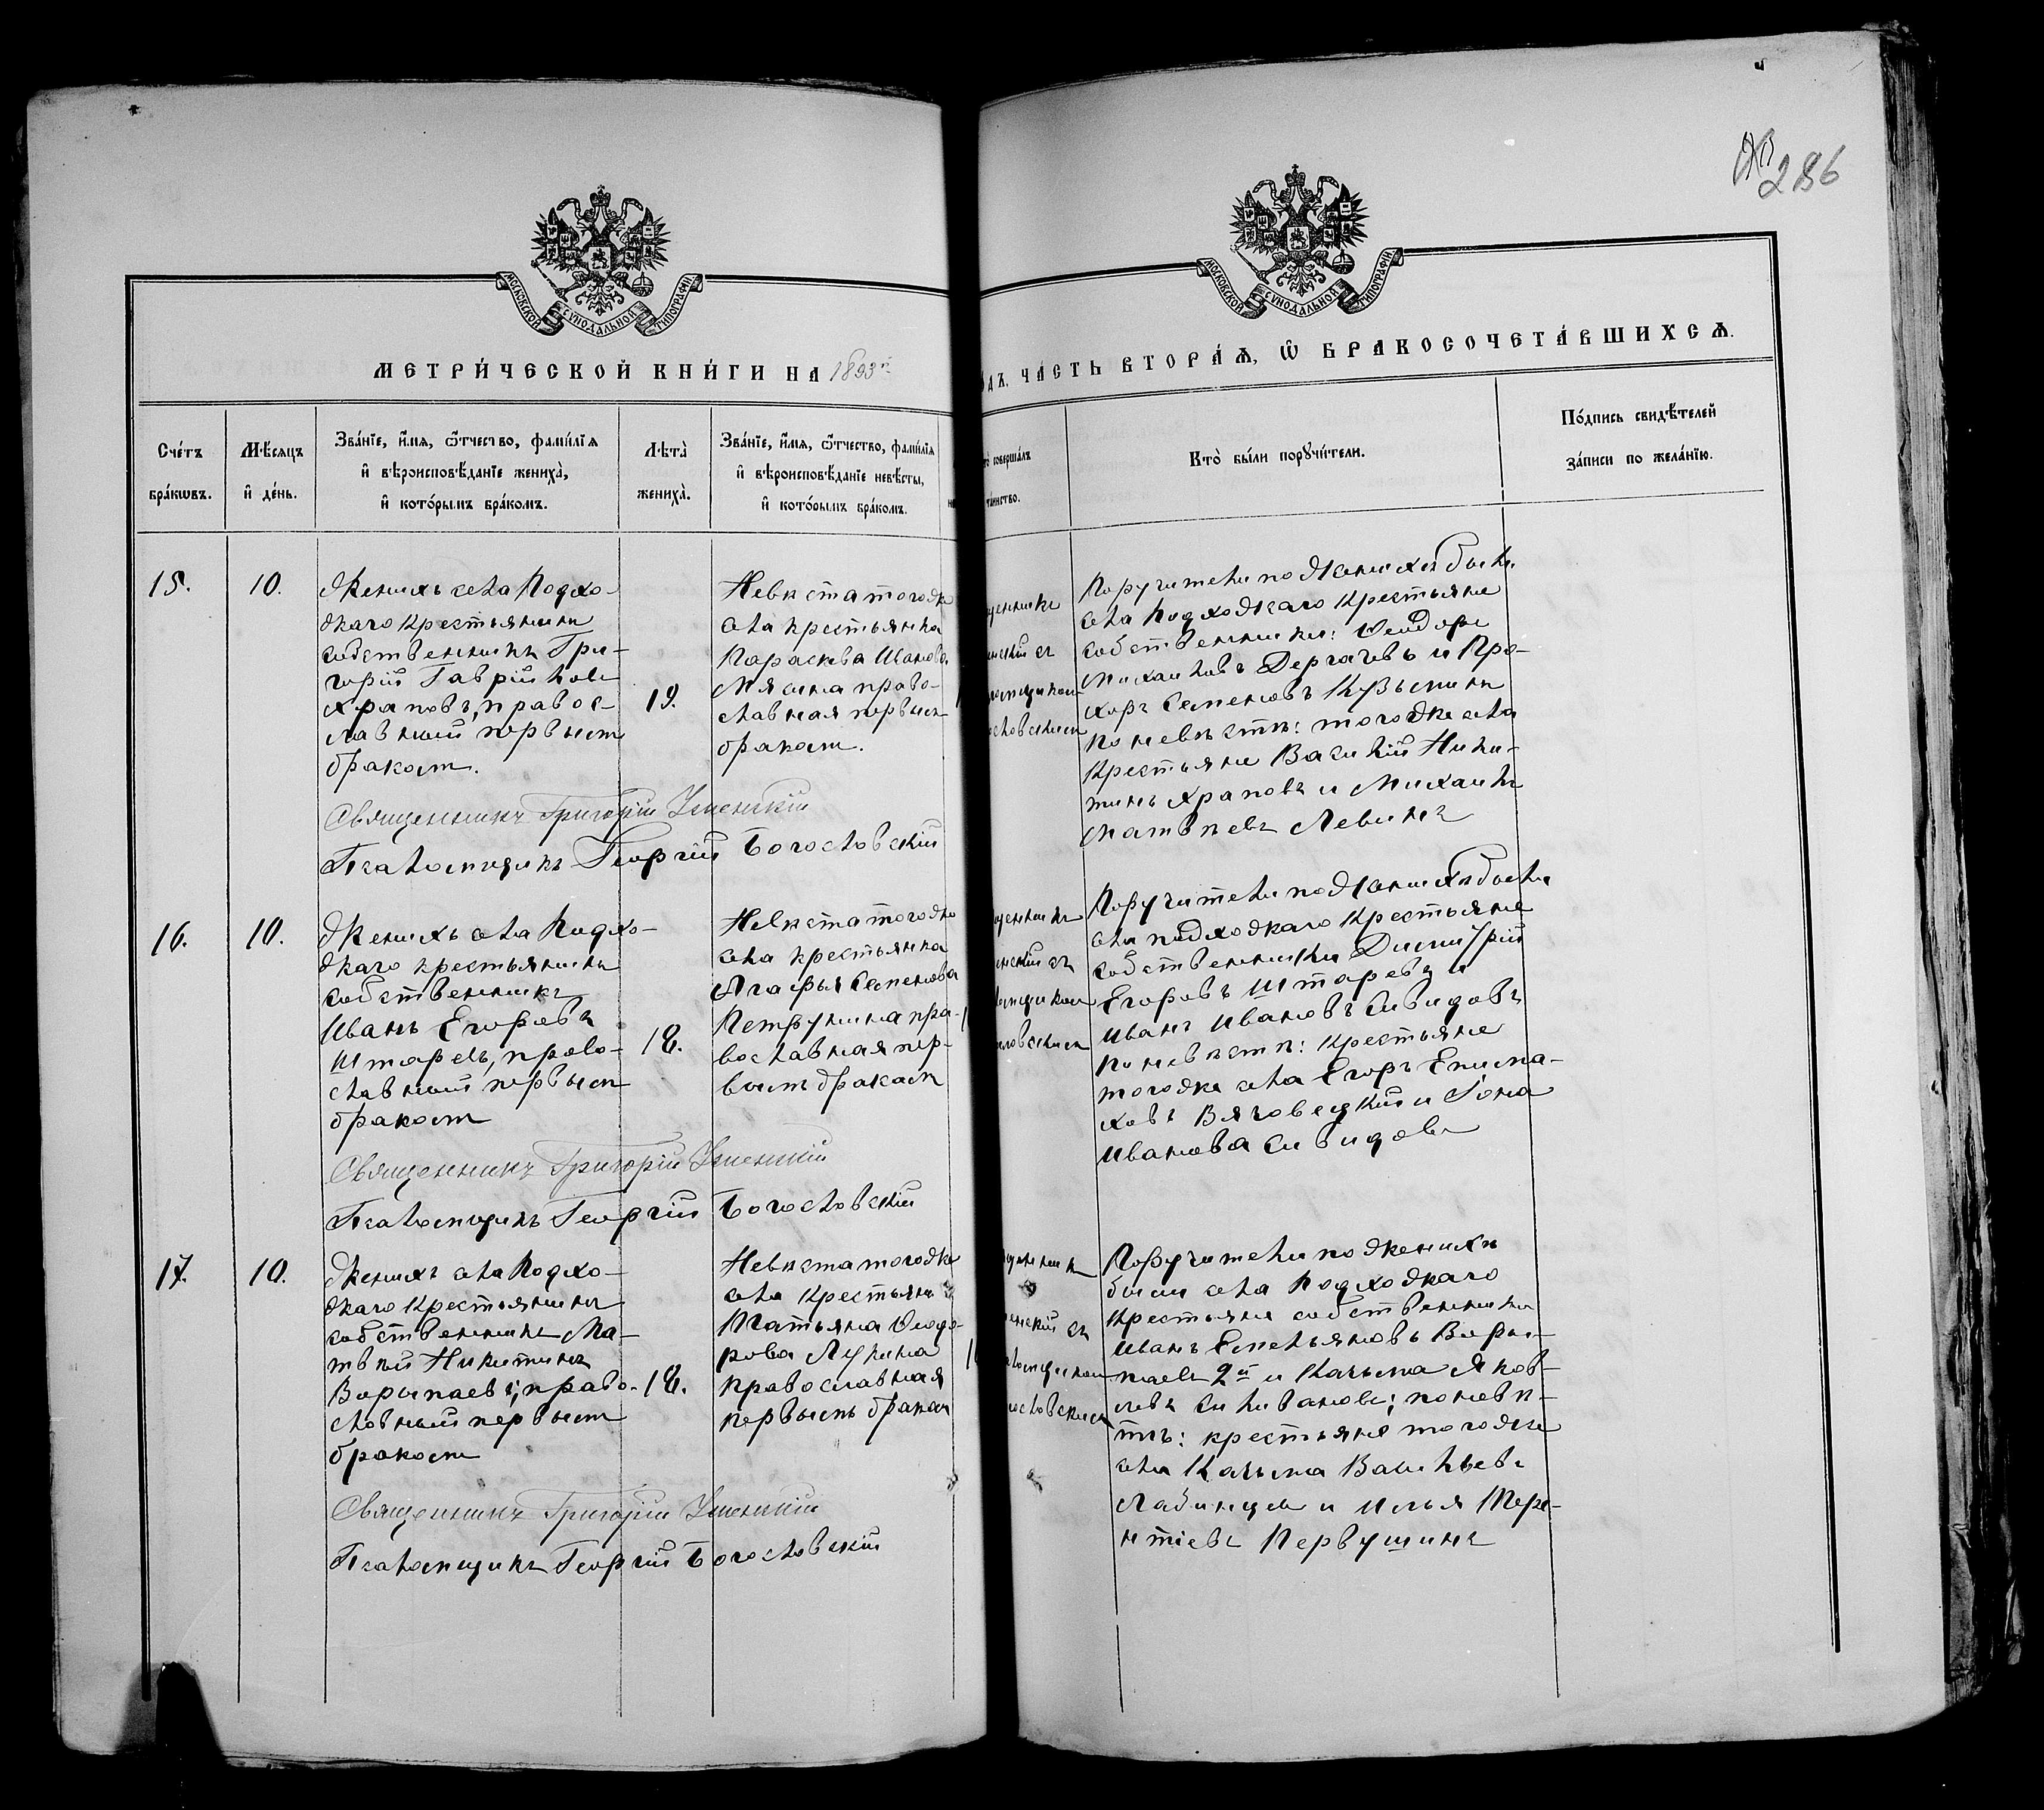 286
МОСКОВСКОЙ СѴНОДАЛЬНОЙ ТИПОГРАФІИ
МОСКОВСКОЙ СѴНОДАЛЬНОЙ ТИПОГРАФІИ
МЕТРИ́ЧЕСКОЙ КНИ́ГИ НА 1893й
ЧА́СТЬ ВТОРА́Ѧ, Ѿ БРАКОСОЧЕТА́ВШИХСѦ.
Сче́тъ
бра́кѡвъ.
Мѣ́сяцъ
и҆ де́нь.
Зва́нїе, и҆́мѧ, ѻ҆́тчество, фами́лїѧ
и҆ вѣроисповѣ́данїе жениха̀,
и҆ кото́рымъ бра́комъ.
Лѣта̀
жениха̀.
Зва́нїе, и҆́мѧ, ѻ҆́тчество, фами́лїѧ
и҆ вѣроисповѣ́данїе невѣ́сты,
и҆ кото́рымъ бра́комъ.
совершалъ
таинство.
Кто̀ бы́ли порꙋчи́тели.
По́дпись свидѣ́телей
за́писи по жела́нїю.
15.
10.
Женихъ села Подхо-
жаго крестьянинъ
собственникъ Гри-
горій Гавріиловъ
Храповъ, правос-
лавный первымъ
бракомъ.
19.
Невѣста тогоже
села крестьянка
Параскева Иванова
Мясина право-
славная первымъ
бракомъ.
Поручители по женихѣ были
села Подхожаго крестьяне
собственники: Ѳеодоръ
Михаиловъ Дергачевъ и Про-
хоръ Семеновъ Кузьминъ
по невѣстѣ: тогоже села
крестьяне Василій Ники-
тинъ Храповъ и Михаилъ
Матвѣевъ Левинъ
Священникъ Григорій
Псаломщикъ Георгій Богословскій
16.
10.
Женихъ села Подхо-
жаго крестьянинъ
собственникъ
Иванъ Егоровъ
Штаревъ, право-
славный первымъ
бракомъ
18.
Невѣста тогоже
села крестьянка
Агафья Семенова
Петрунина пра-
вославная пер-
вымъ бракомъ
Поручители по женихѣ были
села Подхожаго крестьяне
собственники Димитрій
Егоровъ Штаревъ и
Иванъ Ивановъ Сивидовъ
по невѣстѣ: крестьяне
тогоже села Егоръ Епима-
ховъ Вяговецкій и Іона
Ивановъ Сивидовъ
Священникъ Григорій
Псаломщикъ Георгій Богословскій
17.
10.
Женихъ села Подхо-
жаго крестьянинъ
собственникъ Ма-
твѣй Никитинъ
Ворыпаевъ, право-
славный первымъ
бракомъ
18.
Невѣста тогоже
села крестьянка
Татьяна Ѳеодо-
рова Лукина
православная
первымъ бракомъ
Поручители по женихѣ
были села Подхожаго
крестьяне собственники
Иванъ Емельяновъ Воры-
паевъ 2й и Казьма Яков-
левъ Силивановъ; по невѣс-
тѣ: крестьяне тогоже
села Казьма Васильевъ
Лабинцевъ и Илья Тере-
нтіевъ Первушинъ
Священникъ Григорій
Псаломщикъ Георгій Богословскій